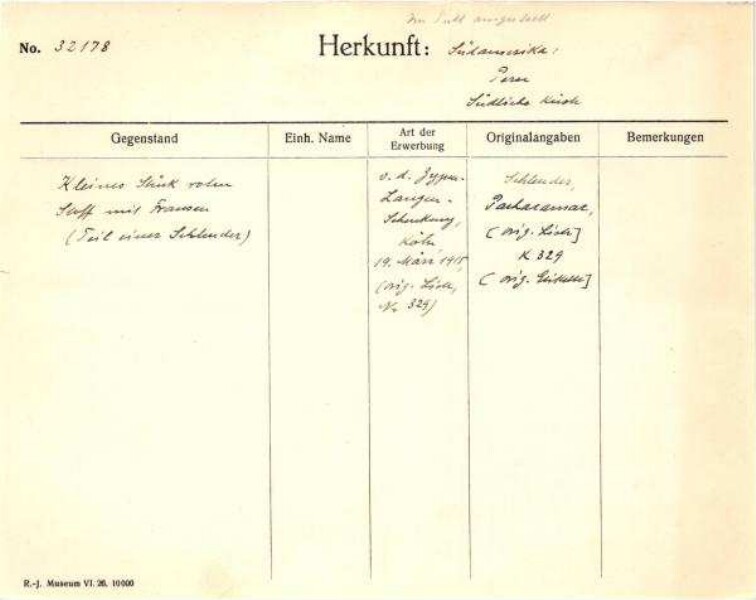 Im Pult ausgestellt
No. 32178
Herkunft: Südamerika:
Peru
Südliche Küste
Gegenstand
Einh. Name
Art der Erwerbung
Originalangaben
Bemerkungen
Kleines Stück roten
Stoff mit Fransen
(Teil einer Schleuder)
v. d. Zypen-
Langen-
Schenkung,
Köln
19. März 1915
(orig. Liste,
Nr. 329)
Schleuder,
(orig. Liste]
K 329
(orig. Etikette]
R.-J. Museum VI. 26. 10000